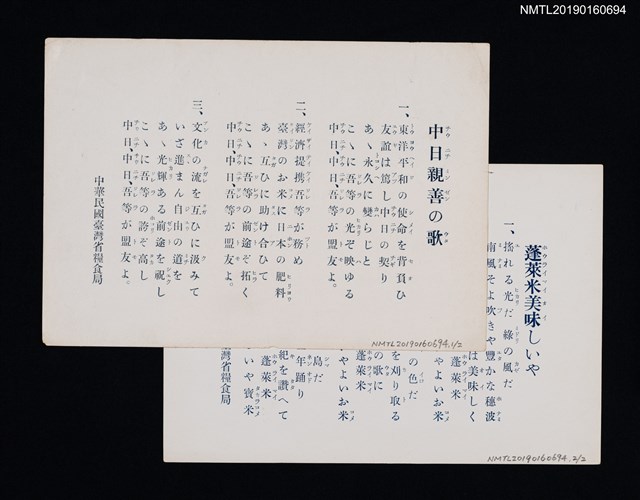 NMTL20190160694
中日親善の歌
一、東洋平和の使命を背負ひ
友誼は篤し中日の契り
あゝ永久に變らじと
こゝに吾等の光ぞ映ゆる
中日、中日、吾等が盟友よ。
二、經濟提携吾等が務め
臺灣のお米に日本の肥料
あゝ互ひに助け合ひて
こゝに吾等の前途ぞ拓く
中日、中日、吾等が盟友よ。
三、文化の流を互ひに汲みて
いざ進まん自由の道を
あゝ光輝ある前途を祝し
こゝに吾等の誇ぞ高し
中日、中日、吾等が盟友よ。
中華民國臺灣省糧食局
NMTL20190160694.1/2
蓬萊米美味しいや
一、搖れる光だ 綠の風だ
南風そよ吹きや豊かな穂波
は美味しく
蓬萊米
やよいお米
の色だ
を刈り取る
の歌に
蓬萊米
やよいお米
島だ
年踊り
祀を讃へて
蓬萊米
いや寶米
臺灣省糧食局
NMTL20190160694.2/2